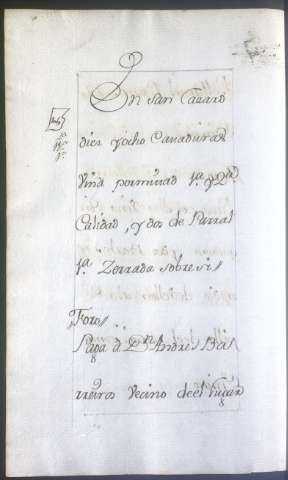 En San Cazaro
diez y ocho Cavaduras
Viña por mitad 1.ª y 2.ª
Calidad, y dos de Parral
1.ª Zerrada sobre si
Foro
Paga a D.n Andres Bar
reiros Vecino de el lugar